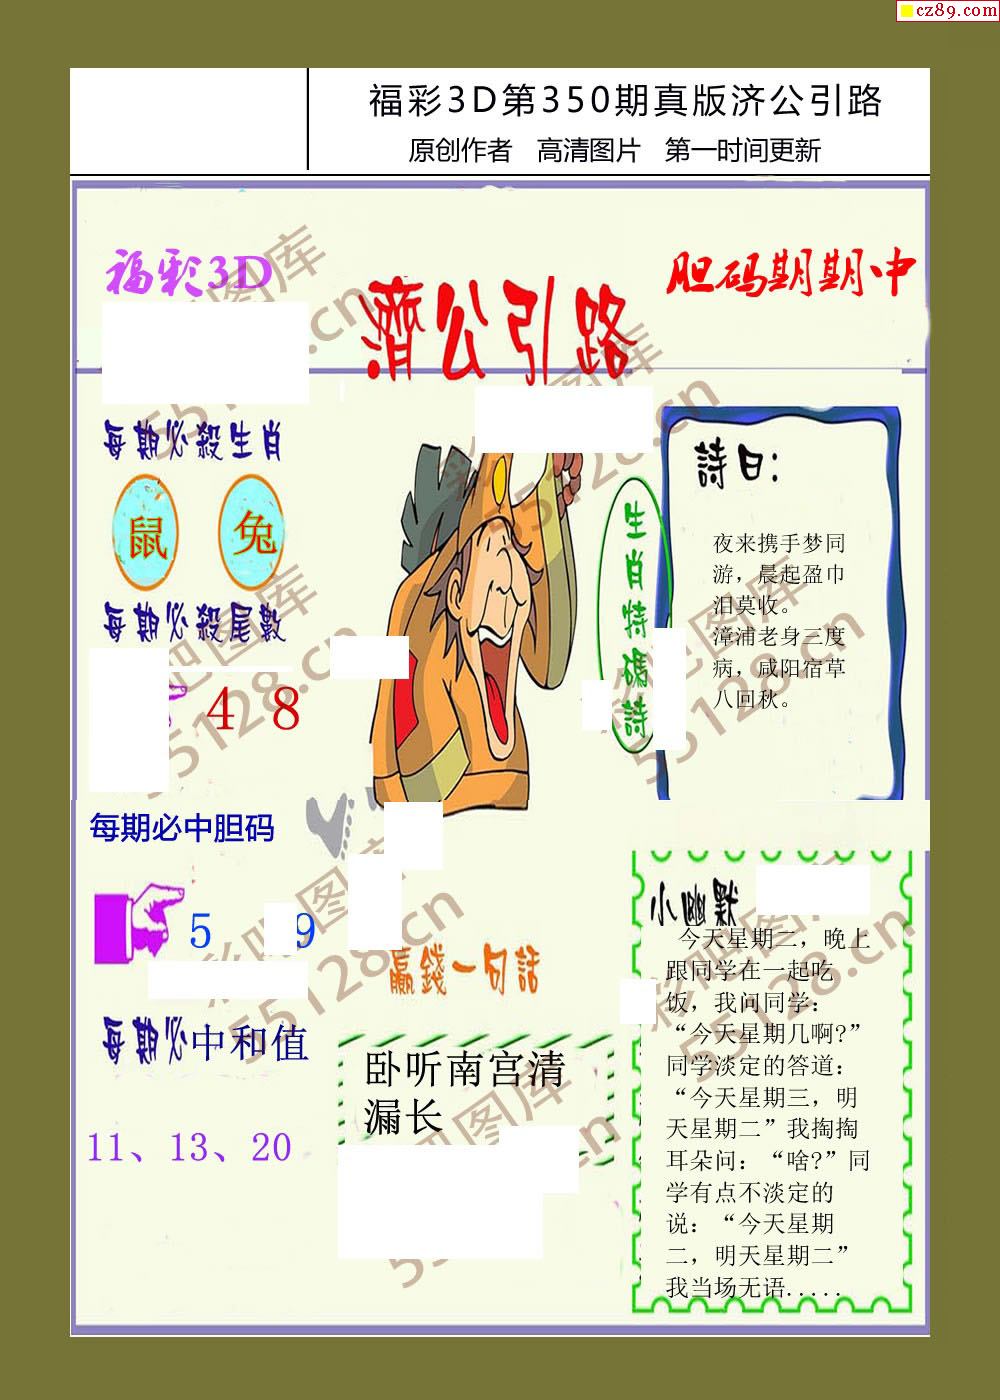 cz89.com
福彩3D第350期真版济公引路
原创作者 高清图片 第一时间更新
福彩3D
濟公引路
胆码期期中
每期必殺生肖
鼠 兔
每期必殺尾數
4 8
每期必中胆码
5 9
每期必中和值
11、13、20
生肖特碼詩
詩曰:
夜来携手梦同
游，晨起盈巾
泪莫收。
漳浦老身三度
病，咸阳宿草
八回秋。
赢錢一句話
卧听南宫清
漏长
小幽默
今天星期二，晚上
跟同学在一起吃
饭，我问同学：
“今天星期几啊?”
同学淡定的答道：
“今天星期三，明
天星期二”我掏掏
耳朵问：“啥?”同
学有点不淡定的
说：“今天星期
二，明天星期二”
我当场无语.....
彩吧图库
55128.cn